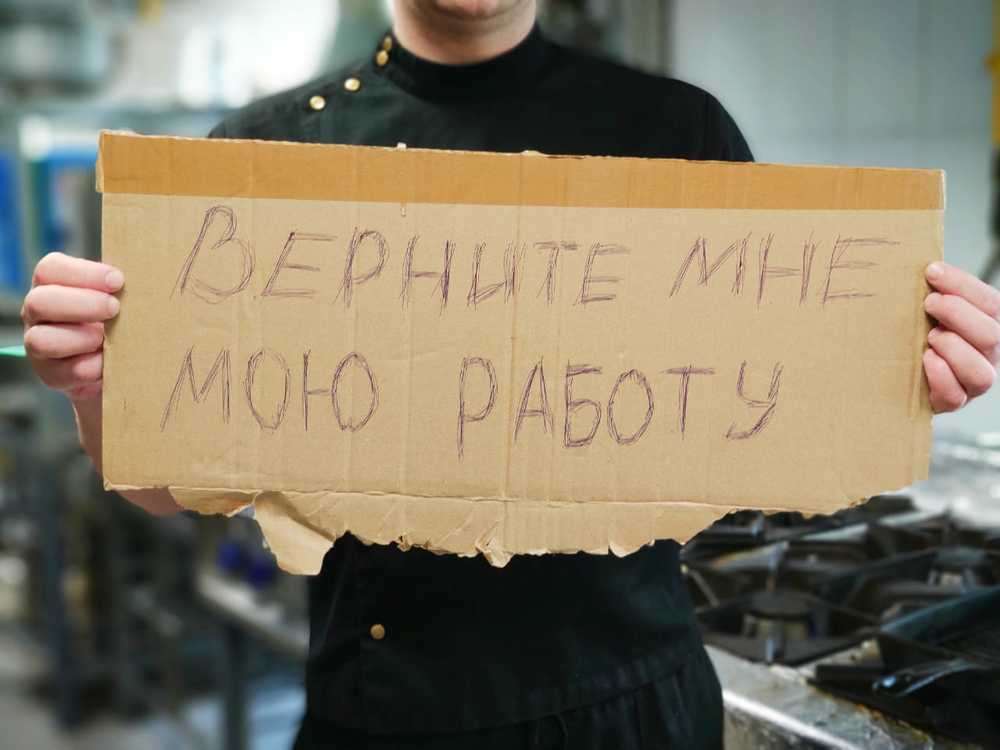 ВЕРНИТЕ МНЕ
МОЮ РАБОТУ